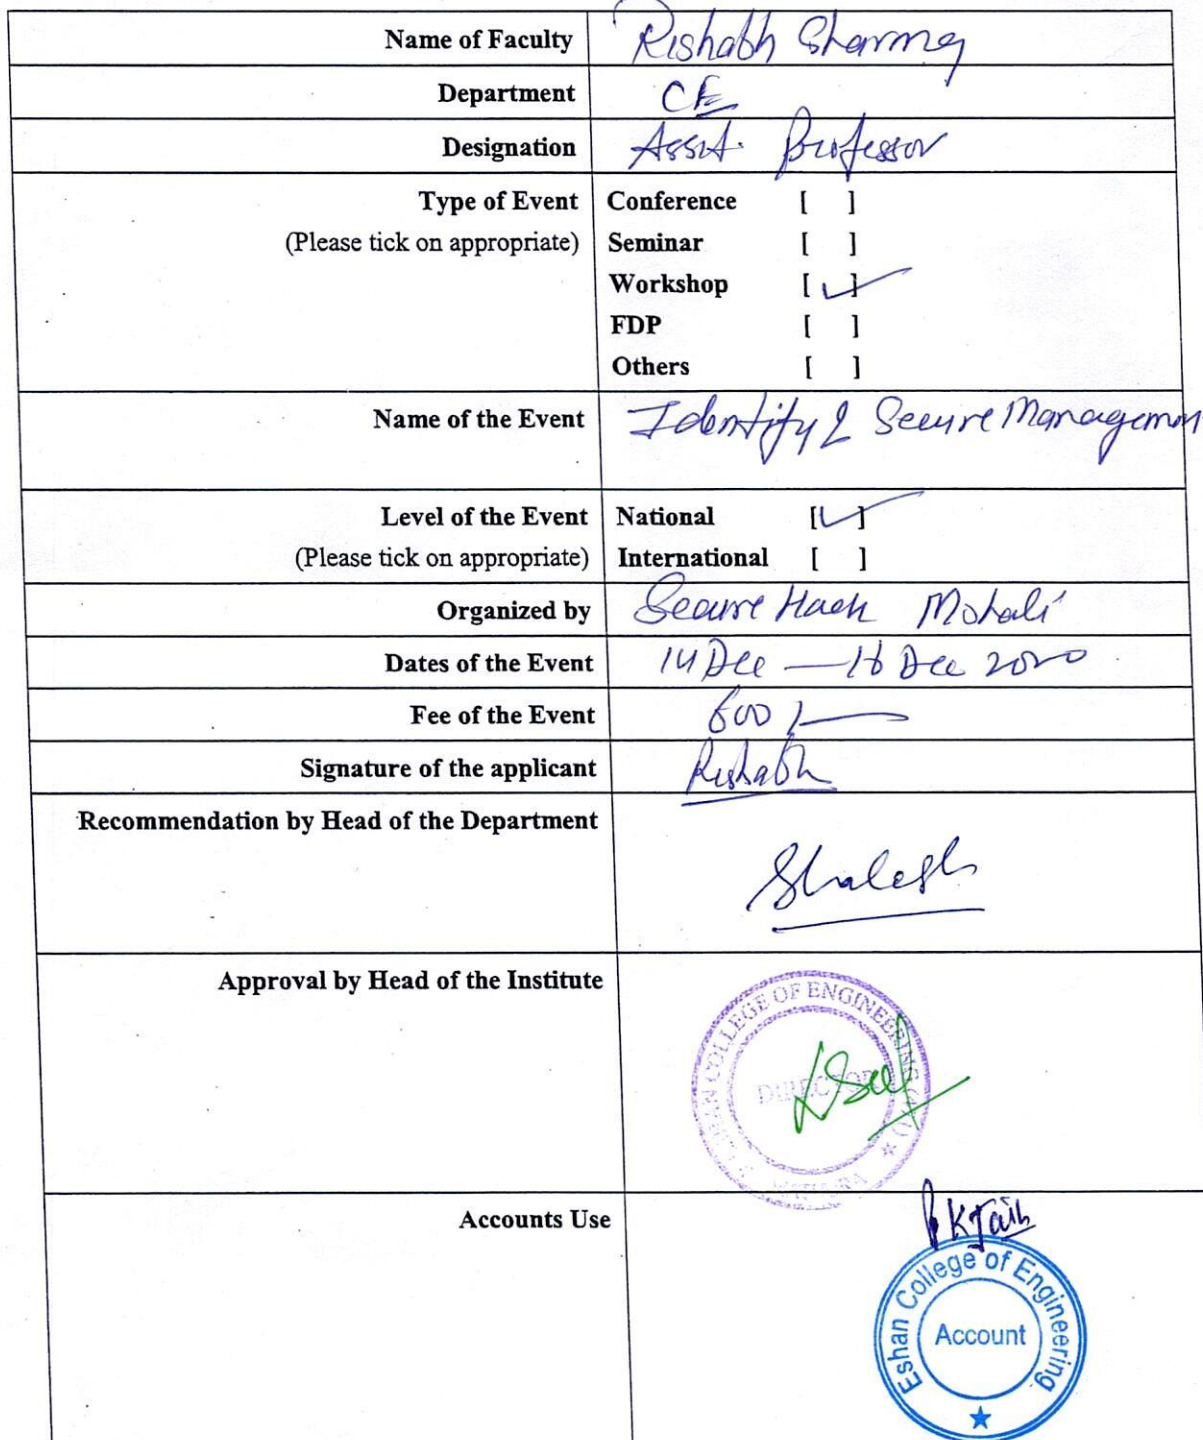 Name of Faculty Rishabh Sharma
Department CE
Designation Asst. Professor
Type of Event Conference [ ]
(Please tick on appropriate) Seminar [ ]
Workshop [✓]
FDP [ ]
Others [ ]
Name of the Event Identify & Secure Managemen
Level of the Event National [✓]
(Please tick on appropriate) International [ ]
Organized by Secure Hack Mohali
Dates of the Event 14 Dec — 16 Dec 2020
Fee of the Event 600/—
Signature of the applicant Rishabh
Recommendation by Head of the Department
Approval by Head of the Institute
ESHAN COLLEGE OF ENGINEERING
DIRECTOR
Accounts Use
K Jain
Eshan College of Engineering
Account